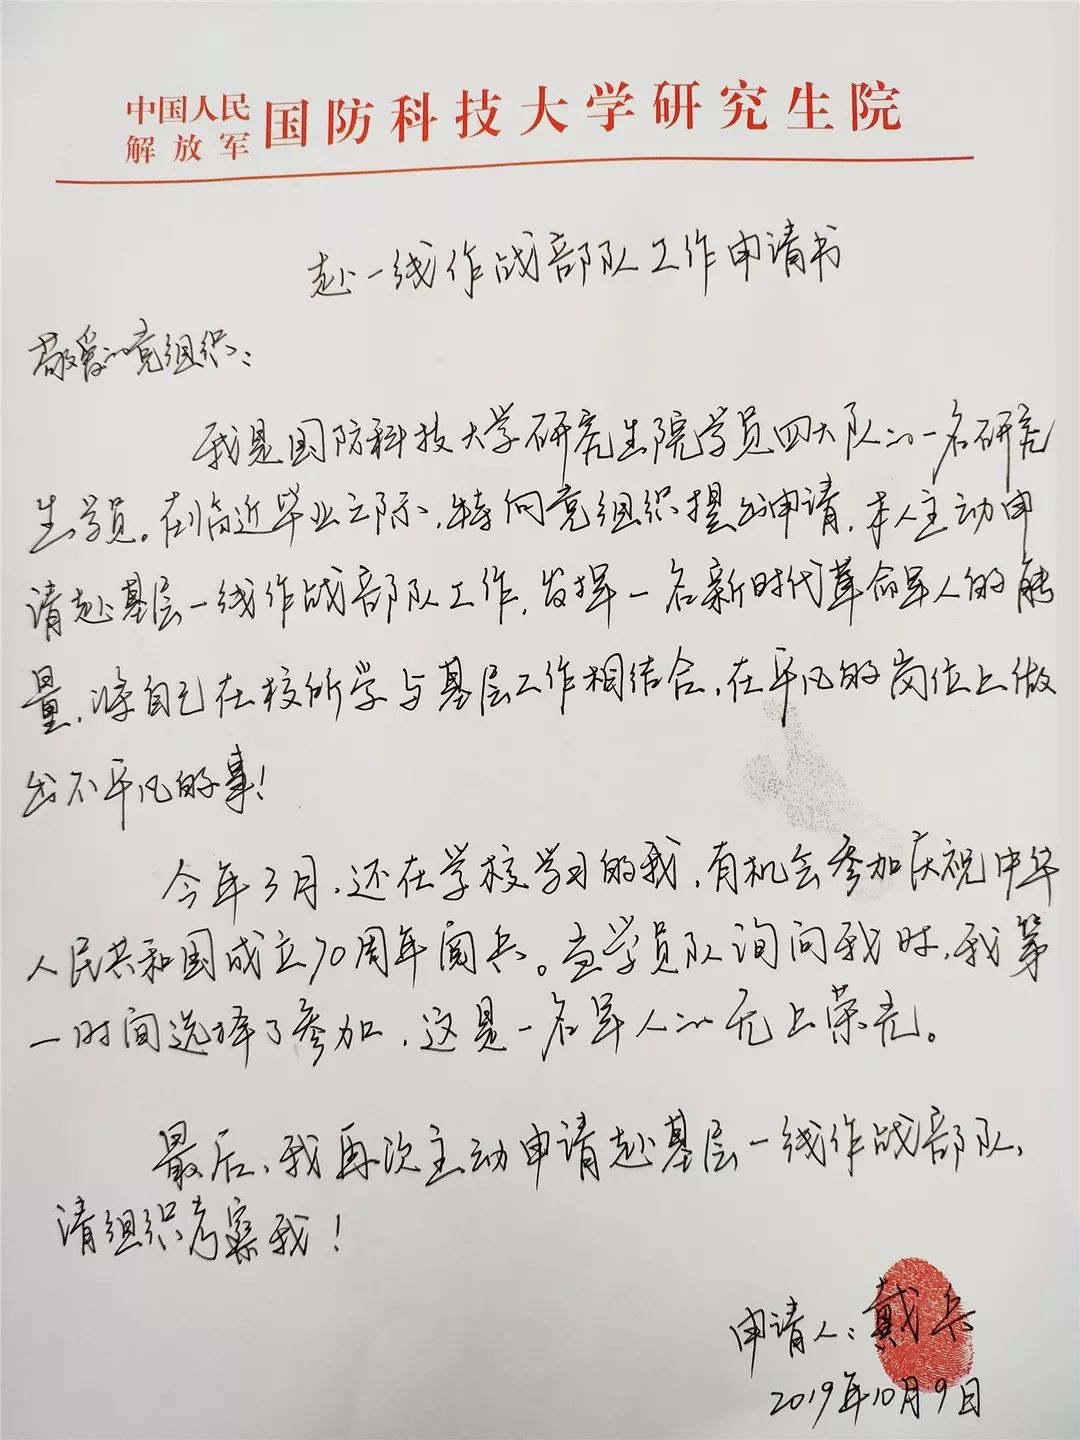 中国人民解放军 国防科技大学研究生院
赴一线作战部队工作申请书
敬爱的党组织：
我是国防科技大学研究生院学员四大队的一名研究
生学员。在临近毕业之际，特向党组织提出申请，本人主动申
请赴基层一线作战部队工作，发挥一名新时代革命军人的能
量，将自己在校所学与基层工作相结合，在平凡的岗位上做
出不平凡的事！
今年3月，还在学校学习的我，有机会参加庆祝中华
人民共和国成立70周年阅兵。当学员队询问我时，我第
一时间选择了参加，这是一名军人的无上荣光。
最后，我再次主动申请赴基层一线作战部队，
请组织考察我！
申请人：戴兵
2019年10月9日